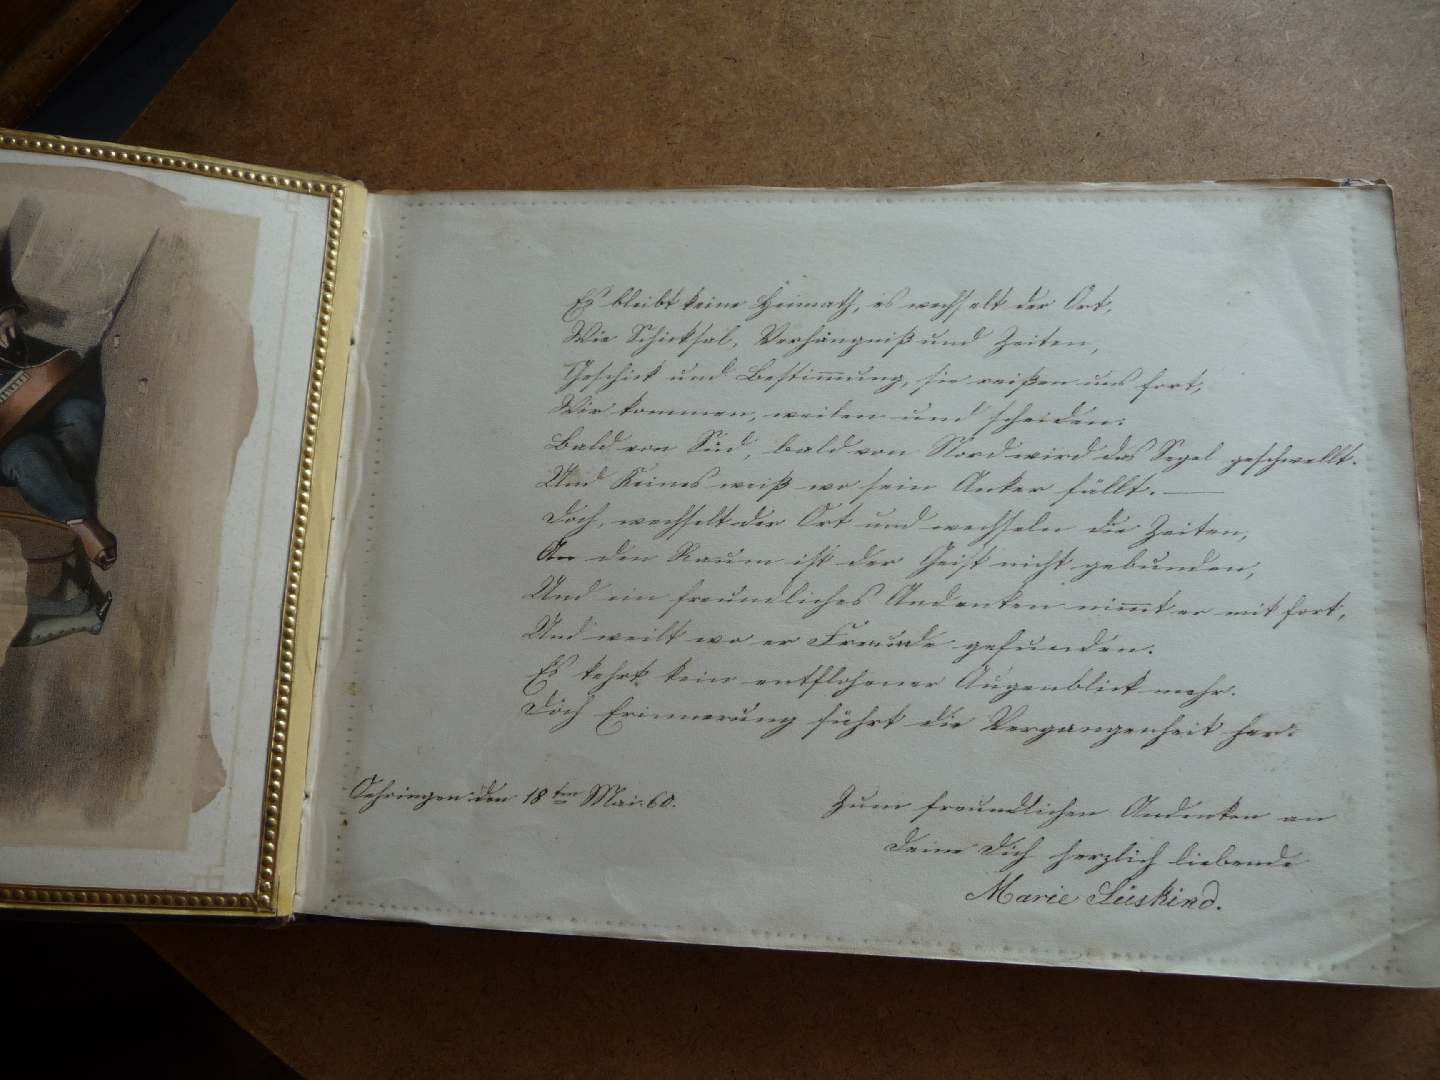 Es bleibt keine Heimath, es wechselt der Ort,
Wie Schicksal, Verhängniß und Zeiten,
Geschick und Bestimmung, sie reißen uns fort,
Wir kommen, weilen und scheiden.
Bald von Süd, bald von Nord wird das Segel geschwellt.
Und Keines weiß wo sein Anker fällt. —
Doch, wechselt der Ort und wechseln die Zeiten,
An den Raum ist der Geist nicht gebunden,
Und ein freundliches Andenken nim̅t er mit fort,
Und weilt wo er Freunde gefunden.
Es kehrt kein entflohener Augenblick mehr.
Doch Erinnerung führt die Vergangenheit her.
Oehringen den 18ten Mai. 60.
Zum freundlichen Andenken an
Deine Dich herzlich liebende
Marie Süskind.